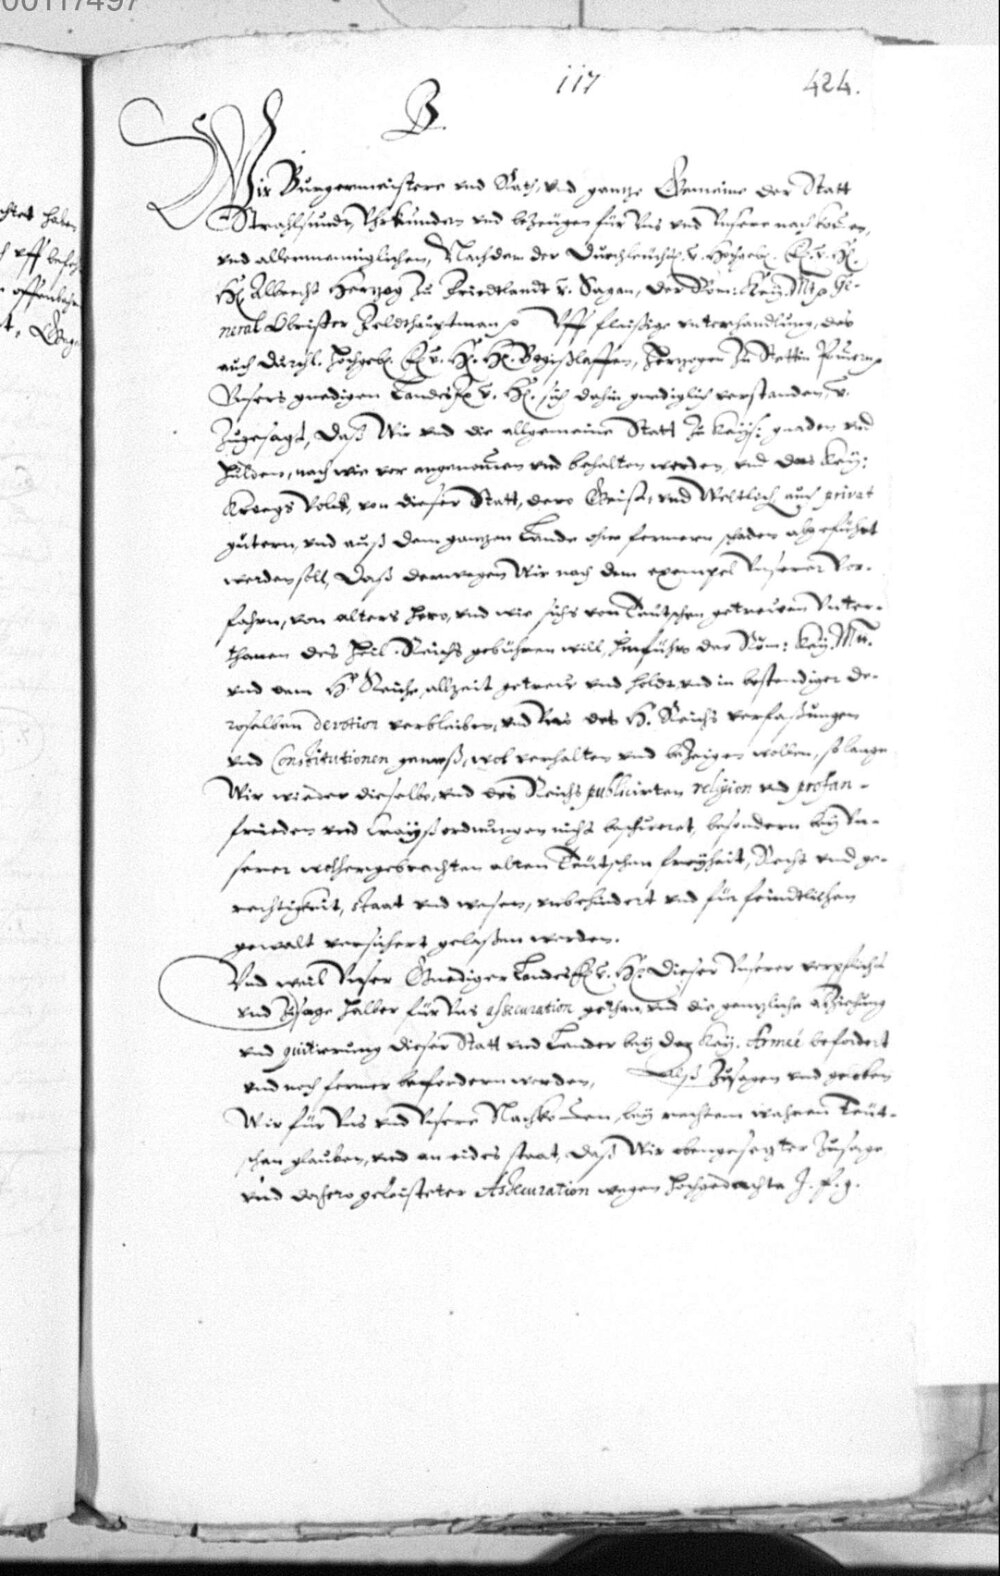 00117497
117 424.
B.
Wir Burgermeistere vnd Rath, vnd gantze Gemeine der Statt
Strahlsundt, Vhrkunden vnd bezeugen für Vns vnd Vnsere nachkomen,
vnd allermenniglichen, Nachdem der Durchleuchtig v. Hochgeb. F. v. H.
H. Albrecht Hertzog zu Friedtlandt v. Sagan, der Röm: Kay. Mtt. Ge-
neral Obrister Feldthauptman Vff fleißige vnterhandlung, des
auch Durchl. Hochgeb. F. v. H. H. Bogißlaffen, Hertzogen zu Stettin Pomern
Vnsers gnedigen Landesf. v. H. sich dahin gnediglich verstanden, v.
Zugesagt, Daß Wir vnd die allgemeine Statt zu Kays: gnaden vnd
hulden, nach wie vor angenomen vnd behalten werden, vnd das Kay:
Kriegs Volck, von dieser Statt, dero Geist, vnd Weltlich, auch privat
gütern, vnd auß dem gantzen Lande ohne fernern schaden abgeführt
werden solt, Daß derwegen Wir nach dem exempel Vnserer Vor-
fahrn, von alters hero, vnd wie sichs von Teutschen getrewen Vnter-
thanen des Heil. Reichs gebühren will, hinführo der Röm: Kay. Mtt.
vnd dem H. Reiche, allzeit getrew vnd holdt vnd in bestendiger de-
roselben devotion verbleiben, vnd Vns des H. Reichs verfaßungen
vnd Constitutionen gemeß, verhalten vnd bezeigen wollen, so lange
Wir wieder dieselbe, vnd des Reichs publicirten religion vnd profan-
frieden vnd Crayßordnungen nicht beschweret, besondern bey Vn-
serer wolhergebrachten alten Teutschen freyheit, Recht vnd ge-
rechtigkeit, staat vnd wesen, vnbehindert vnd für feindtlichen
gewalt versichert gelaßen werden.
Vnd weil Vnser Gnediger Landesf. v. H. dieser Vnserer verpflicht
vnd Zusage halber für Vns assecuration gethan, vnd die gentzliche abziehung
vnd quitierung dieser Statt vnd Lander bey der Kay. Armeé befodert
vnd noch ferner befordern werden, Alß Zusagen vnd geloben
Wir für Vns vnd Vnsere Nachkomen, bey rechtem wahren Teut-
schen glauben, vnd an eides staat, daß Wir obengesagter Zusage
vnd dahero geleisteter Assecuration wegen hochgedachte J. f. g.